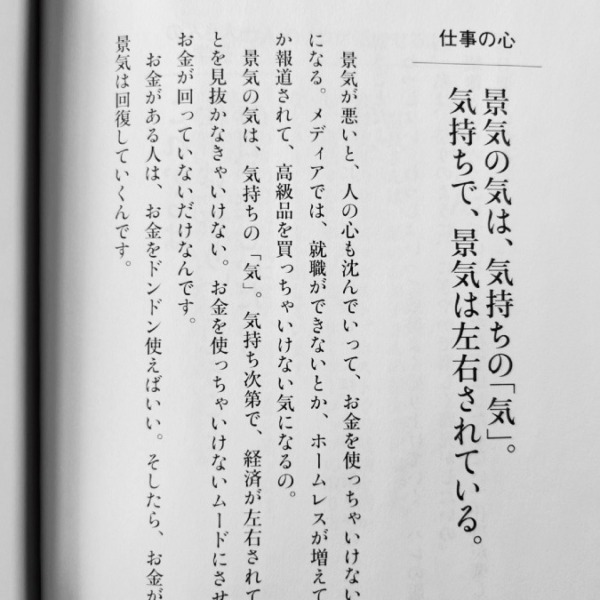 仕事の心
景気の気は、気持ちの「気」。
気持ちで、景気は左右されている。
景気が悪いと、人の心も沈んでいって、お金を使っちゃいけない
になる。メディアでは、就職ができないとか、ホームレスが増えて
か報道されて、高級品を買っちゃいけない気になるの。
景気の気は、気持ちの「気」。気持ち次第で、経済が左右されて
とを見抜かなきゃいけない。お金を使っちゃいけないムードにさせ
お金が回っていないだけなんです。
お金がある人は、お金をドンドン使えばいい。そしたら、お金が
景気は回復していくんです。